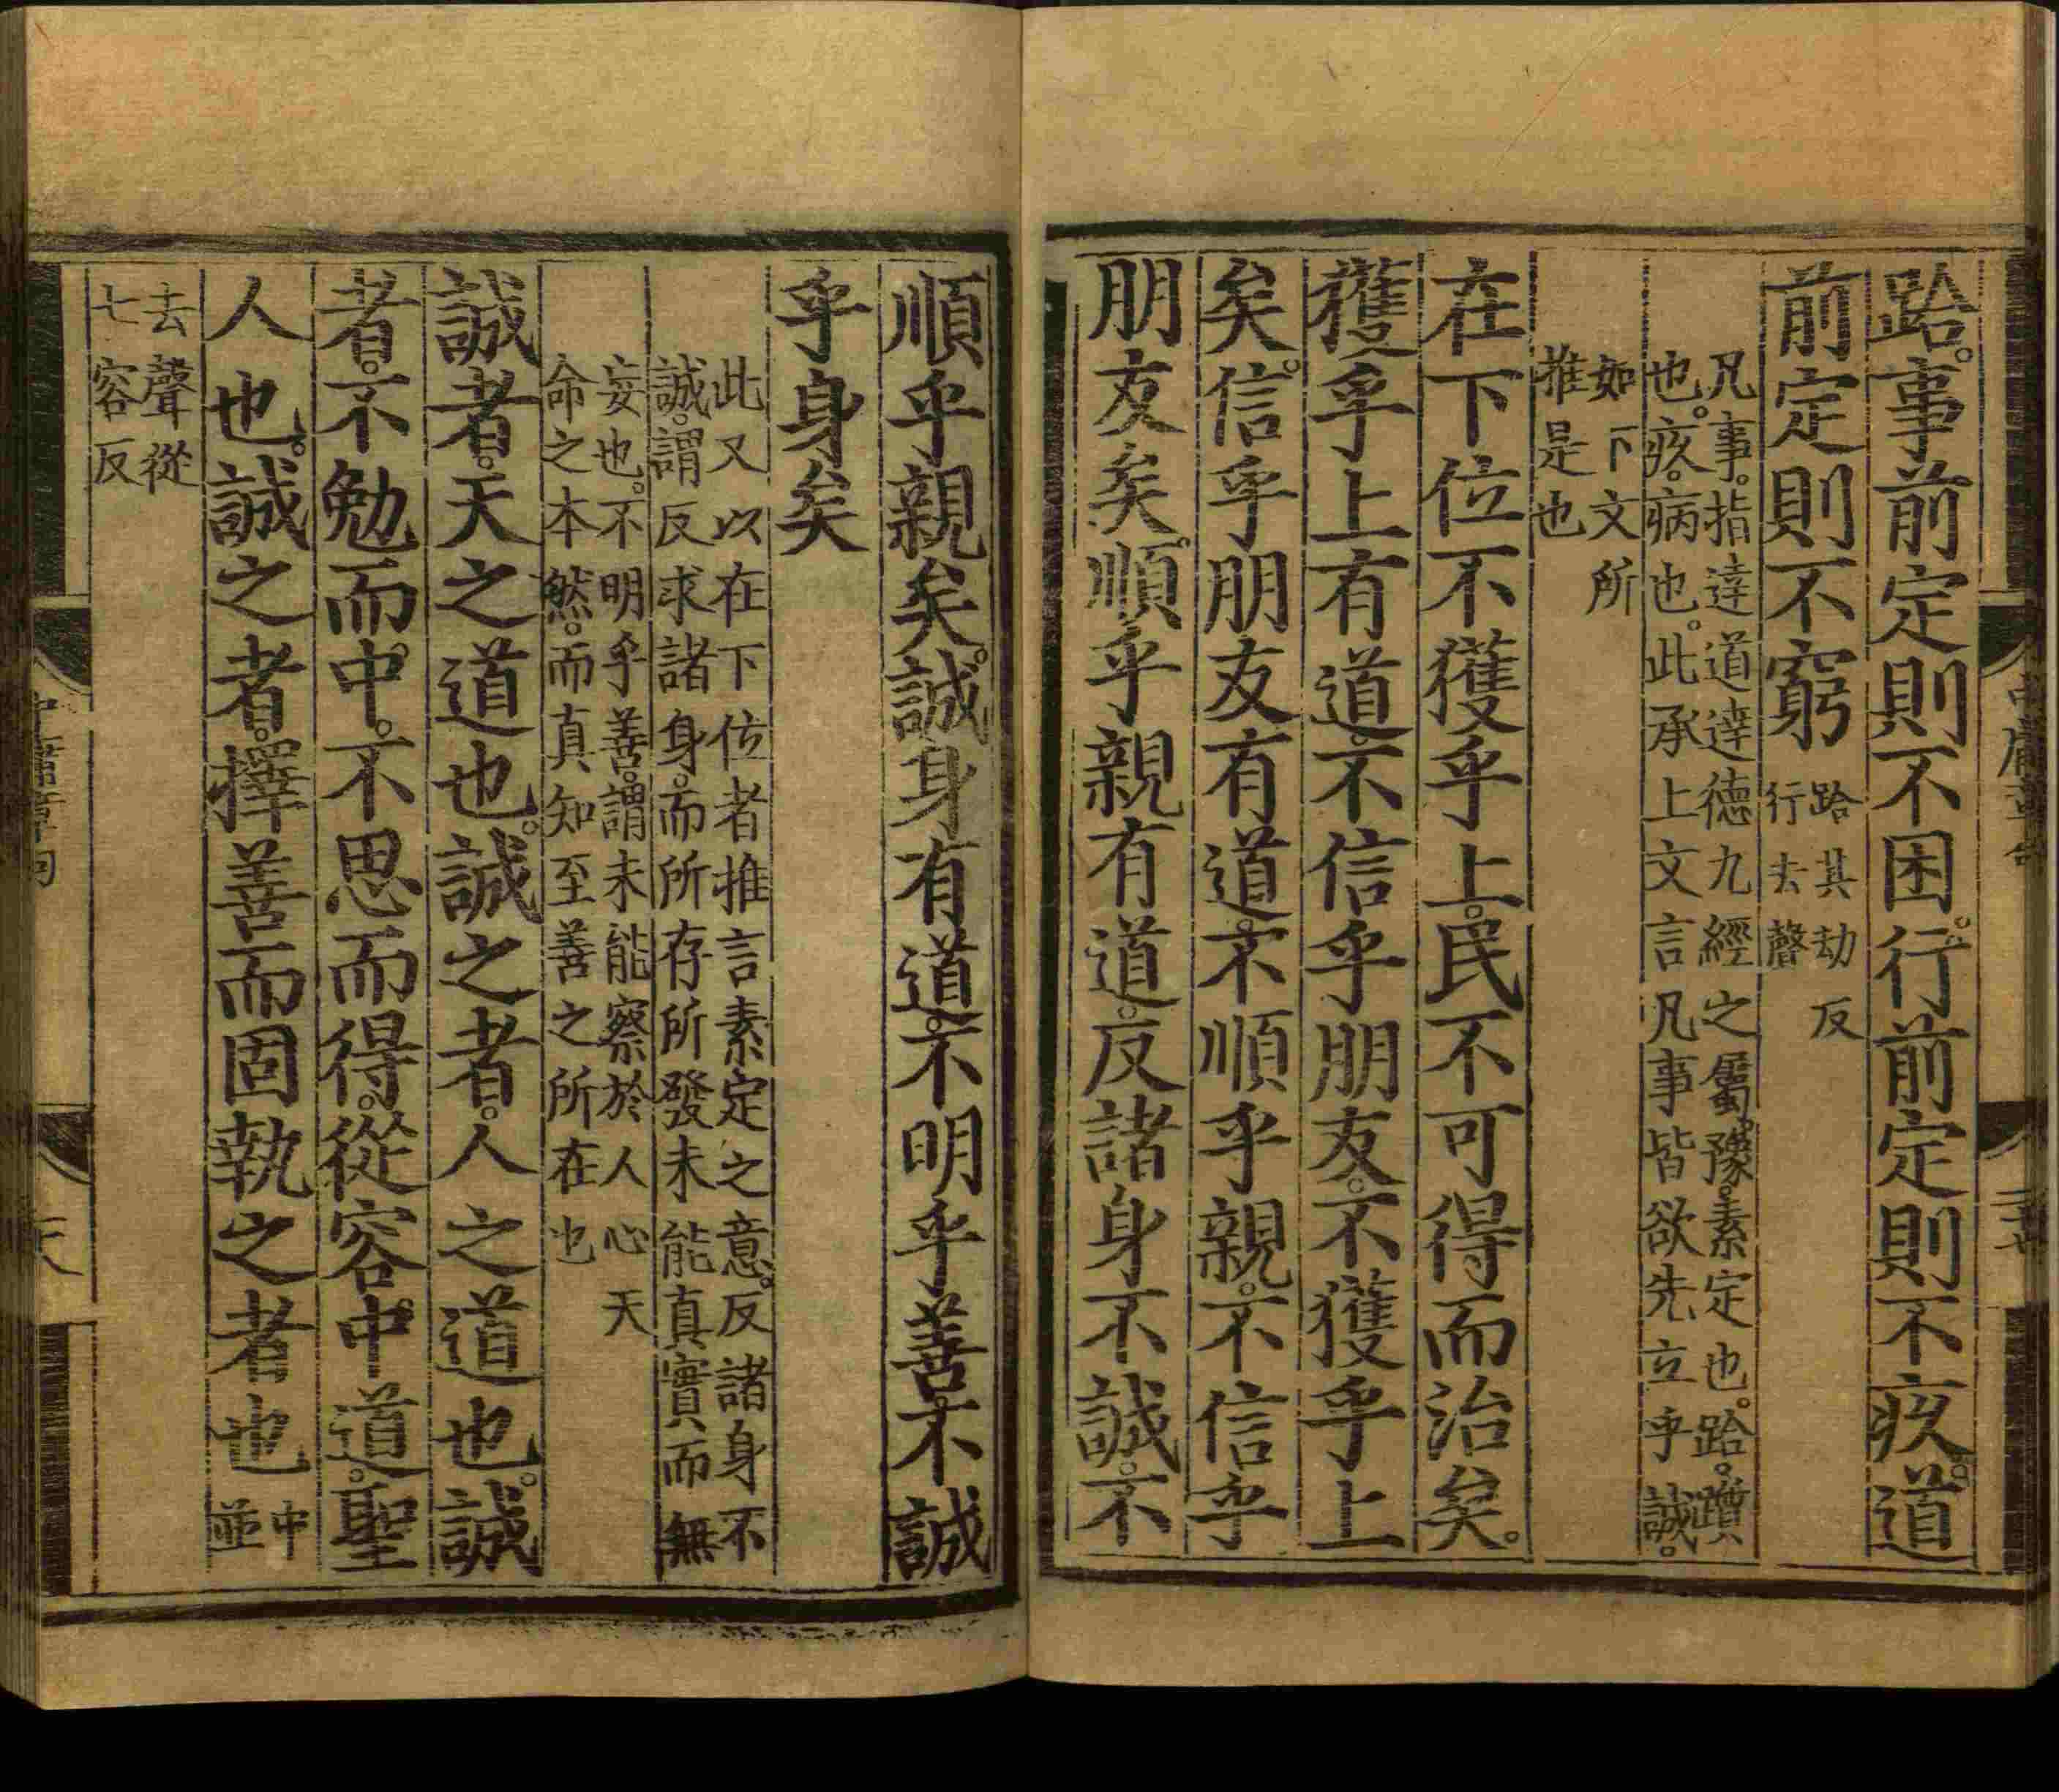 跲。事前定則不困。行前定則不疚。道
前定則不窮 跲其劫反
行去聲
凡事。指達道達德九經之屬。豫。素定也。跲。躓
也。疚。病也。此承上文言凡事皆欲先立乎誠。
如下文所
推是也
在下位不獲乎上。民不可得而治矣。
獲乎上有道。不信乎朋友。不獲乎上
矣。信乎朋友有道。不順乎親。不信乎
朋友矣。順乎親有道。反諸身不誠。不
順乎親矣。誠身有道。不明乎善。不誠
乎身矣
此又以在下位者推言素定之意。反諸身不
誠。謂反求諸身。而所存所發未能真實而無
妄也。不明乎善。謂未能察於人心天
命之本然。而真知至善之所在也
誠者。天之道也。誠之者。人之道也。誠
者。不勉而中。不思而得。從容中道。聖
人也。誠之者。擇善而固執之者也 中
並
去聲從
七容反